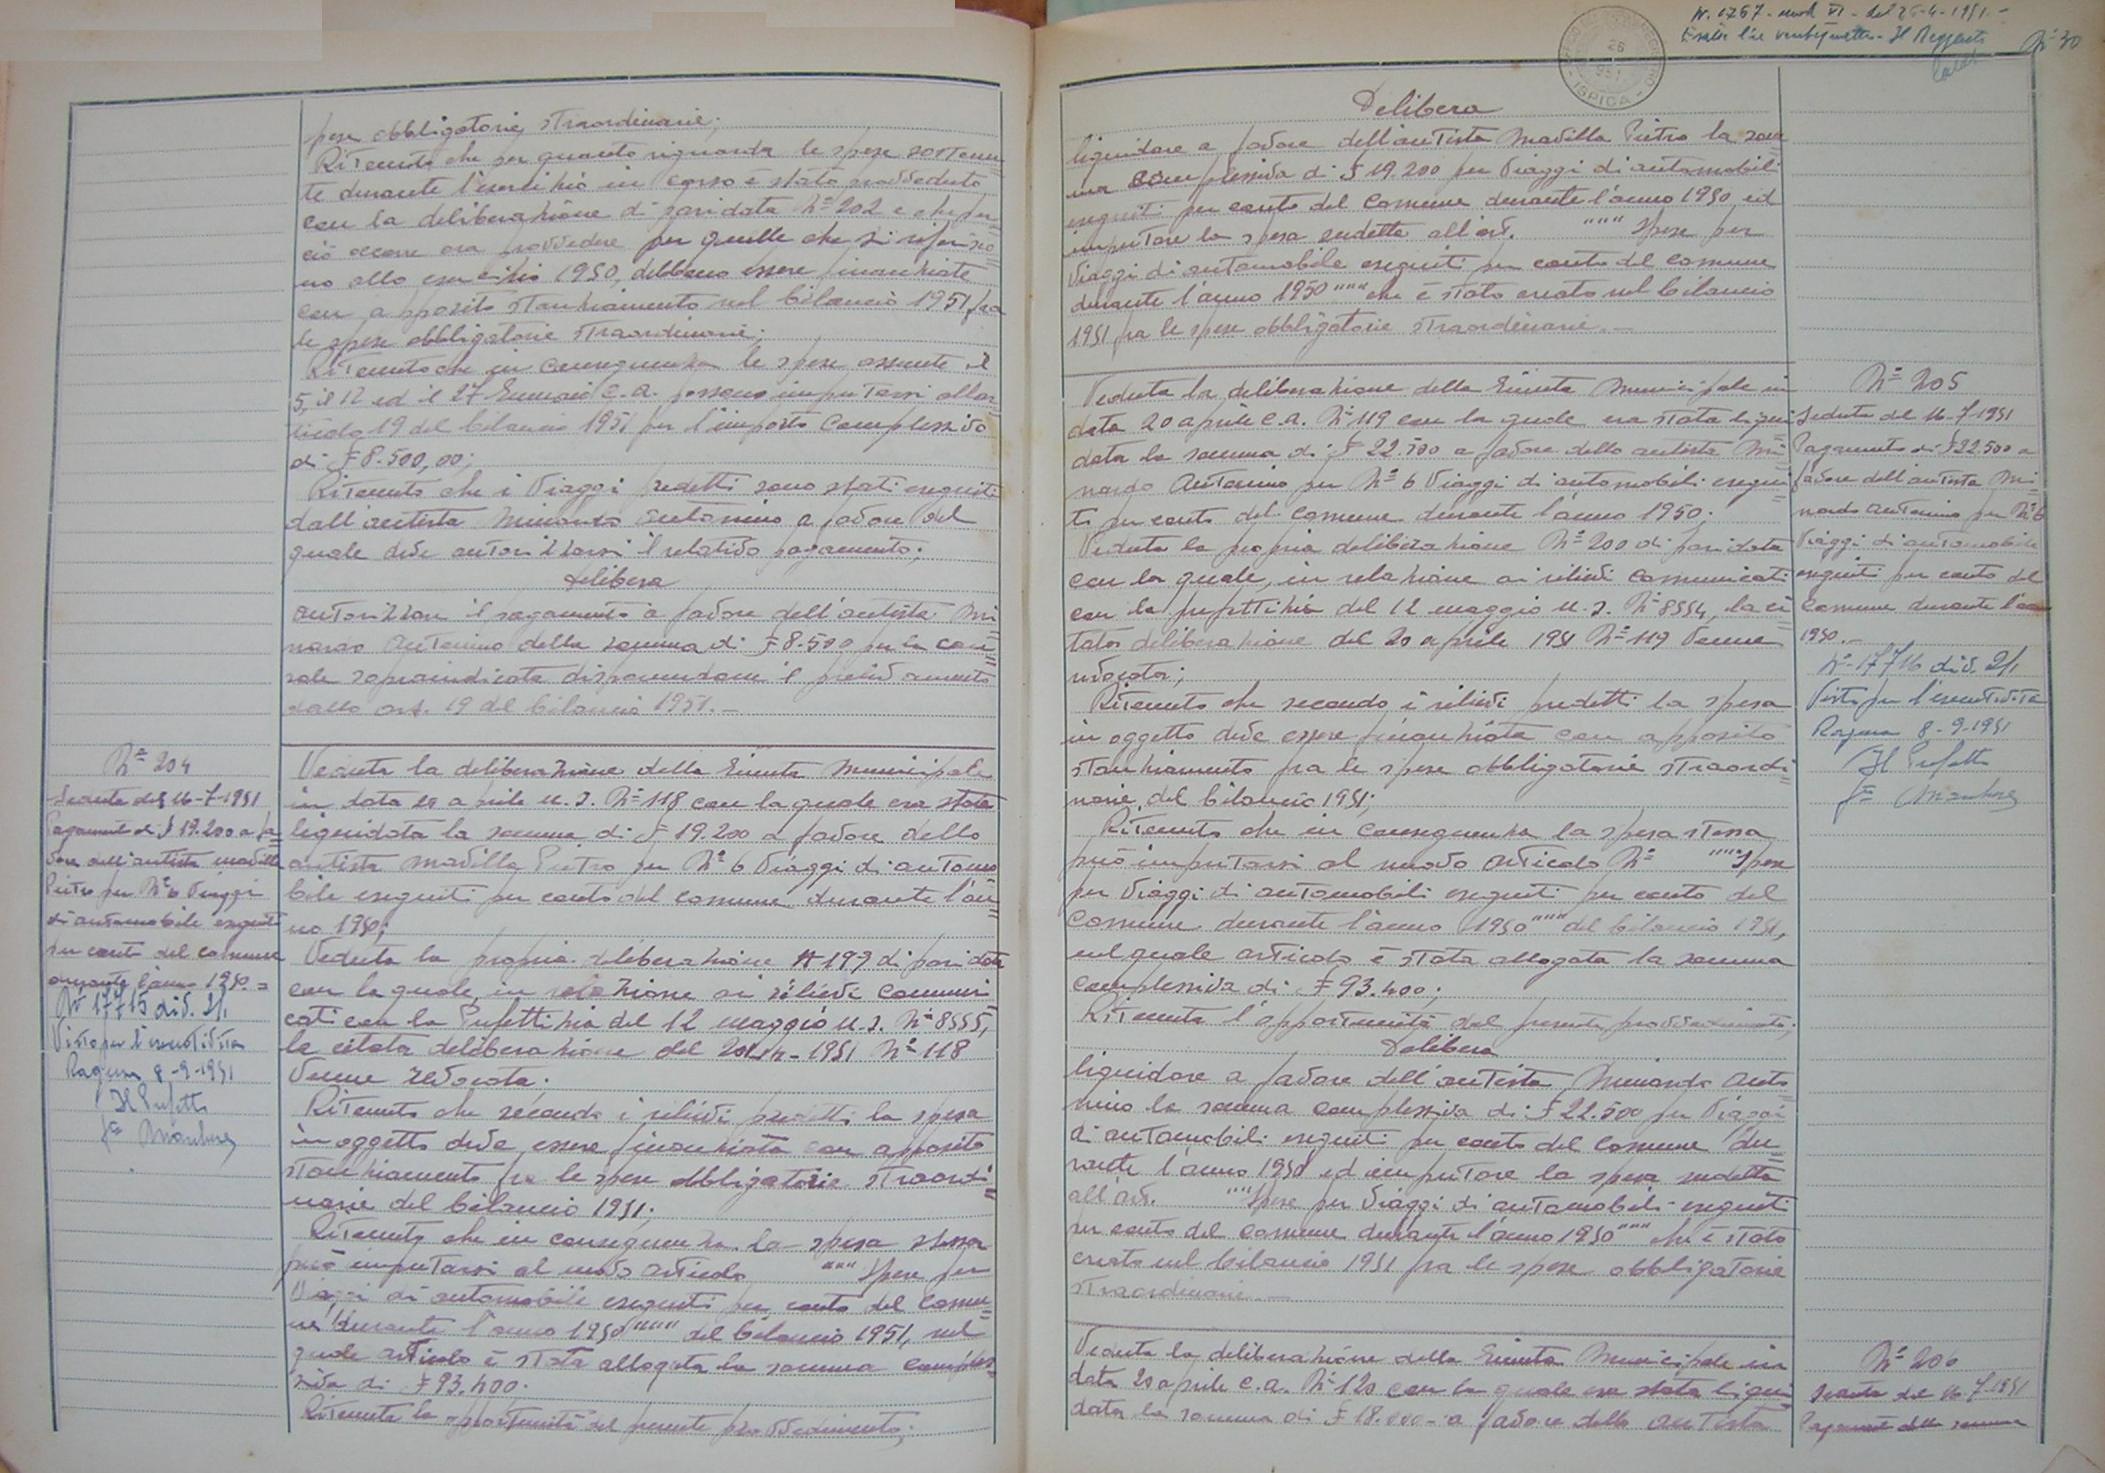 pese obbligatorie straordinarie;
Ritenuto che per quanto riguarda le spese sostenu
te durante l'esercizio in corso è stato provveduto
con la deliberazione di pari data N° 202 e che per
ciò occorre ora provvedere per quelle che si riferisco
no allo esercizio 1950, debbono essere finanziate
con apposito stanziamento nel bilancio 1951 fra
le spese obbligatorie straordinarie;
Ritenuto che in conseguenza le spese assunte il
5, il 12 ed il 27 Gennaio c.a. possono imputarsi allar
ticolo 19 del bilancio 1951 per l'importo complessivo
di £ 8.500,00;
Ritenuto che i viaggi predetti sono stati eseguiti
dall'autista Minardo Antonino a favore del
quale deve autorizzarsi il relativo pagamento;
Delibera
autorizzare il pagamento a favore dell'autista Mi=
nardo Antonino della somma di £ 8.500 per la cau=
sale sopraindicata disponendone il prelevamento
dallo art. 19 del bilancio 1951.-
N° 204
Seduta del 16-7-1951
Pagamento di £ 19.200 a fa
vore dell'autista Madilla
Pietro per N° 6 viaggi
di automobile eseguiti
per conto del comune
durante l'anno 1950.=
N° 17715 div. 2/1
Visto per l'esecutività
Ragusa 8-9-1951
Il Prefetto
Veduta la deliberazione della Giunta Municipale
in data 20 aprile u.s. N° 118 con la quale era stata
liquidata la somma di £ 19.200 a favore dello
autista Madilla Pietro per N° 6 viaggi di automo
bile eseguiti per conto del comune durante l'an=
no 1950;
Veduta la propria deliberazione N 199 di pari data
con la quale, in relazione ai rilievi comuni
cati con la Prefettizia del 12 maggio u.s. N° 8555,
la citata deliberazione del 20-4-1951 N° 118
venne revocata.
Ritenuto che secondo i rilievi predetti la spesa
in oggetto deve essere finanziata con apposito
stanziamento fra le spese obbligatorie straordi=
narie del bilancio 1951;
Ritenuto che in conseguenza la spesa stessa
può imputarsi al nuovo articolo """ Spese per
viaggi di automobile eseguiti per conto del comu=
ne durante l'anno 1950 """ del bilancio 1951, nel
quale articolo è stata allogata la somma comples=
siva di £ 93.400.
Ritenuta la opportunità del presente provvedimento;
N. 0767 - mod VI - del 26-4-1951.-
N° 30
ISPICA
26
Delibera
liquidare a favore dell'autista Madilla Pietro la som=
ma complessiva di £ 19.200 per viaggi di automobili
eseguiti per conto del comune durante l'anno 1950 ed
imputare la spesa sudetta all'art. """ Spese per
viaggi di automobile eseguiti per conto del comune
durante l'anno 1950 """ che è stato creato nel bilancio
1951 fra le spese obbligatorie straordinarie.-
Veduta la deliberazione della Giunta Municipale in
data 20 aprile c.a. N° 119 con la quale era stata liqui=
data la somma di £ 22.500 a favore dello autista Mi=
nardo Antonino per N° 6 viaggi di automobili esegui=
ti per conto del comune durante l'anno 1950.
Veduta la propria deliberazione N° 200 di pari data
con la quale, in relazione ai rilievi comunicati
con la prefettizia del 12 maggio u.s. N° 8554, la ci=
tata deliberazione del 20 aprile 1951 N° 119 venne
revocata;
Ritenuto che secondo i rilievi predetti la spesa
in oggetto deve essere finanziata con apposito
stanziamento fra le spese obbligatorie straordi=
narie del bilancio 1951;
Ritenuto che in conseguenza la spesa stessa
può imputarsi al nuovo articolo N° """ Spese
per viaggi di automobili eseguiti per conto del
comune durante l'anno 1950 """ del bilancio 1951,
nel quale articolo è stata allogata la somma
complessiva di £ 93.400;
Ritenuta l'opportunità del presente provvedimento;
Delibera
liquidare a favore dell'autista Minardo Anto
nino la somma complessiva di £ 22.500 per viaggi
di automobili eseguiti per conto del comune du=
rante l'anno 1950 ed imputare la spesa sudetta
all'art. """ Spese per viaggi di automobili eseguiti
per conto del comune durante l'anno 1950 """ che è stato
creato nel bilancio 1951 fra le spese obbligatorie
straordinarie.-
Veduta la deliberazione della Giunta Municipale in
data 20 aprile c.a. N° 120 con la quale era stata liqui=
data la somma di £ 18.000 - a favore dello autista
N° 205
Seduta del 16-7-1951
Pagamento di £ 22.500 a
favore dell'autista Mi=
nardo Antonino per N° 6
viaggi di automobile
eseguiti per conto del
comune durante l'anno
1950.-
N° 17716 div. 2/1
Visto per l'esecutività
Ragusa 8-9-1951
Il Prefetto
N° 206
Seduta del 16-7-1951
Pagamento della somma